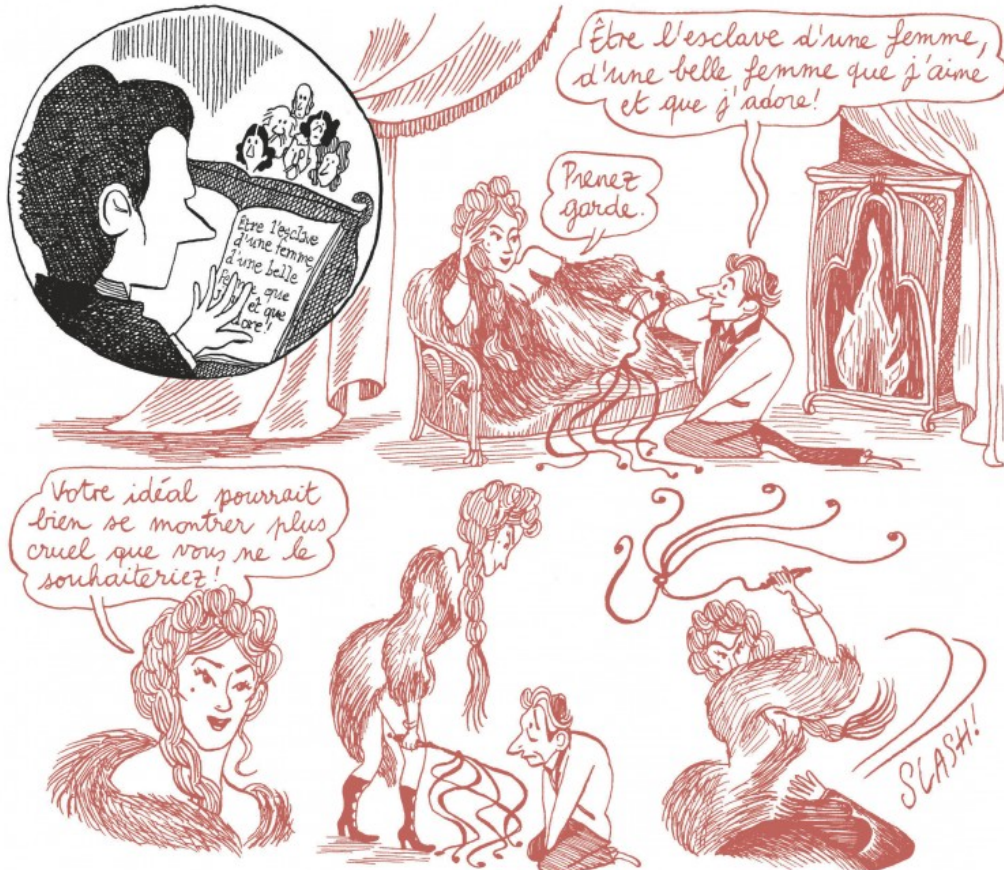 Être l'esclave
d'une femme
d'une belle
que
et que
ore!
Être l'esclave d'une femme,
d'une belle femme que j'aime
et que j'adore!
Prenez
garde.
Votre idéal pourrait
bien se montrer plus
cruel que vous ne le
souhaiteriez!
SLASH!